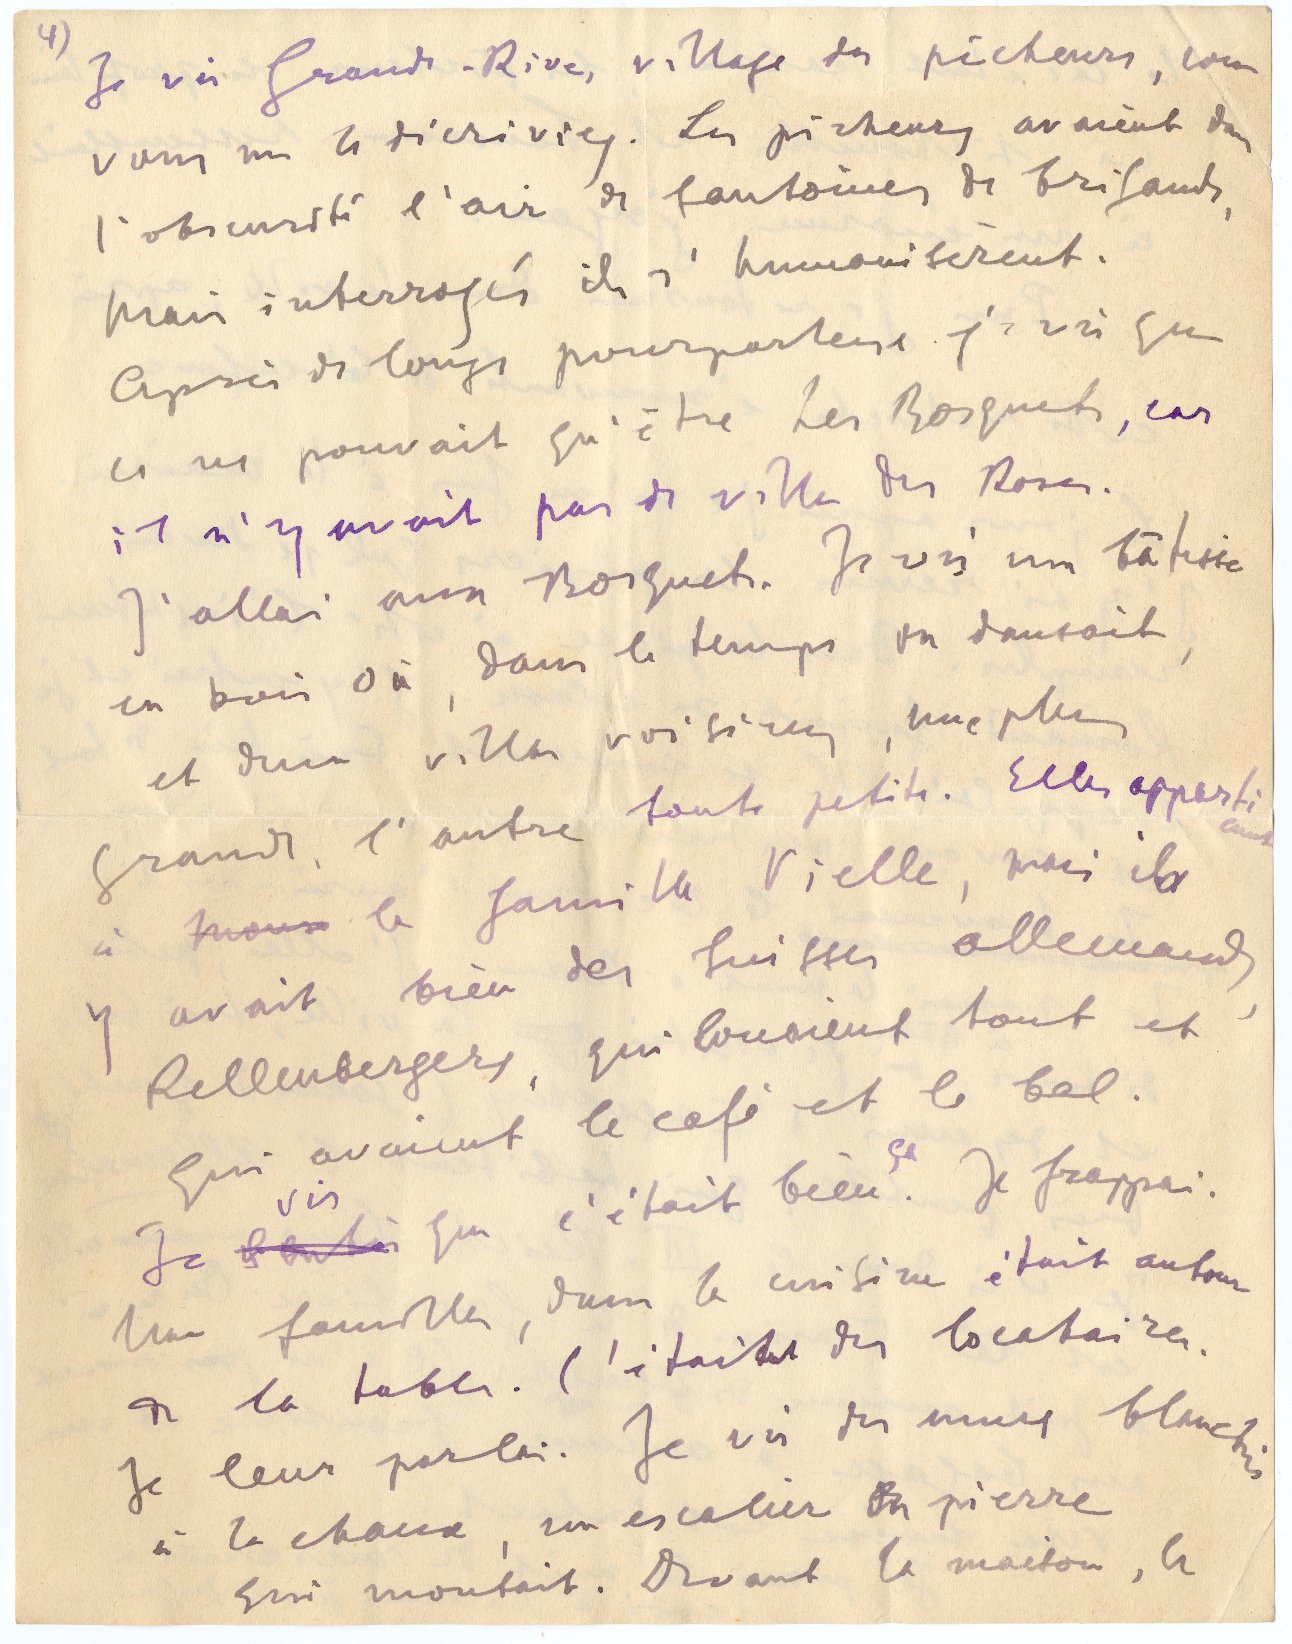 4)
Je vis Grande-Rive, village des pêcheurs, com
vous me le décriviez. Les pêcheurs avaient dans
l'obscurité l'air de fantômes de brigands,
mais interrogés ils s'humanisèrent.
Après de longs pourparlers je vis que
ce ne pouvait qu'être Les Bosquets, car
il n'y avait pas de villa des Roses.
J'allai aux Bosquets. Je vis une bâtisse
en bois où, dans le temps on dansait,
et deux villas voisines, une plus
grande, l'autre toute petite. Elles apparti
ennent
à la famille Vielle, mais il
y avait bien des Suisses allemands,
Rellenbergers, qui louaient tout et
qui avaient le café et le bal.
Je vis que c'était bien ça. Je frappai.
Une famille, dans la cuisine était autour
de la table. C'était des locataires.
Je leur parlai. Je vis des murs blanchis
à la chaux, un escalier en pierre
qui montait. Devant la maison, le